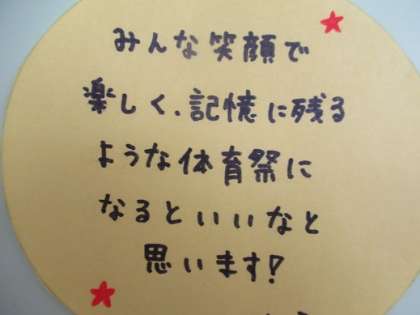 みんな笑顔で
楽しく、記憶に残る
ような体育祭に
なるといいなと
思います!